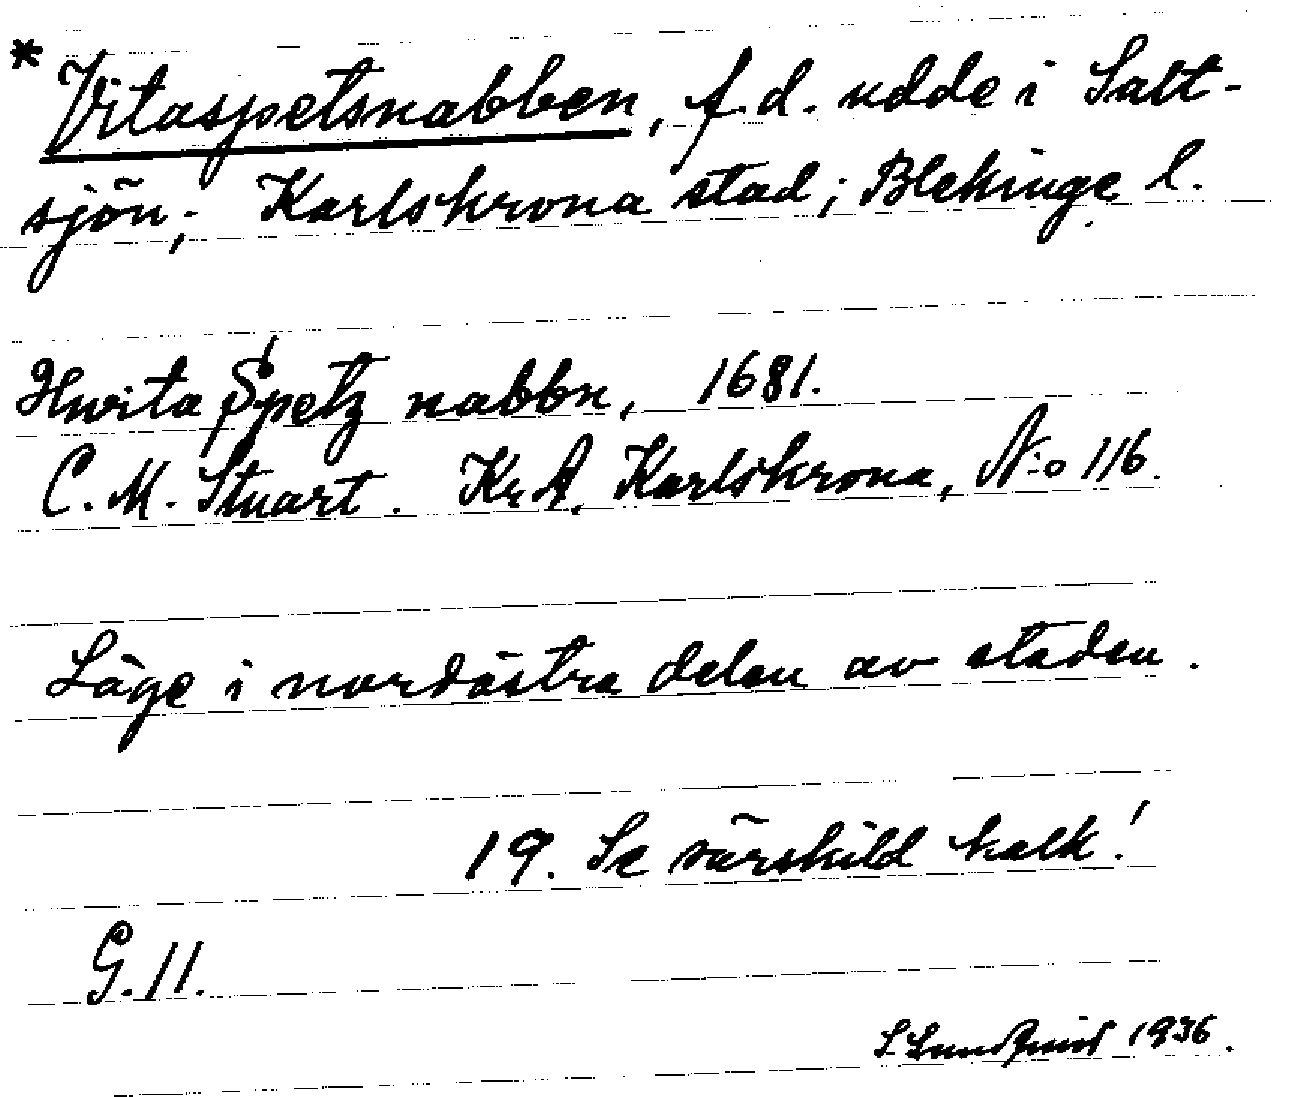 * Vitaspetsnabben, f.d. udde i Salt-
sjön; Karlskrona stad; Blekinge l.
Hwita Spetz nabbn, 1681.
C. M. Stuart. Kr A. Karlskrona, N:o 116.
Läge i nordöstra delen av staden.
19. Se särskild kalk!
G. 11.
S Lundquist 1936.